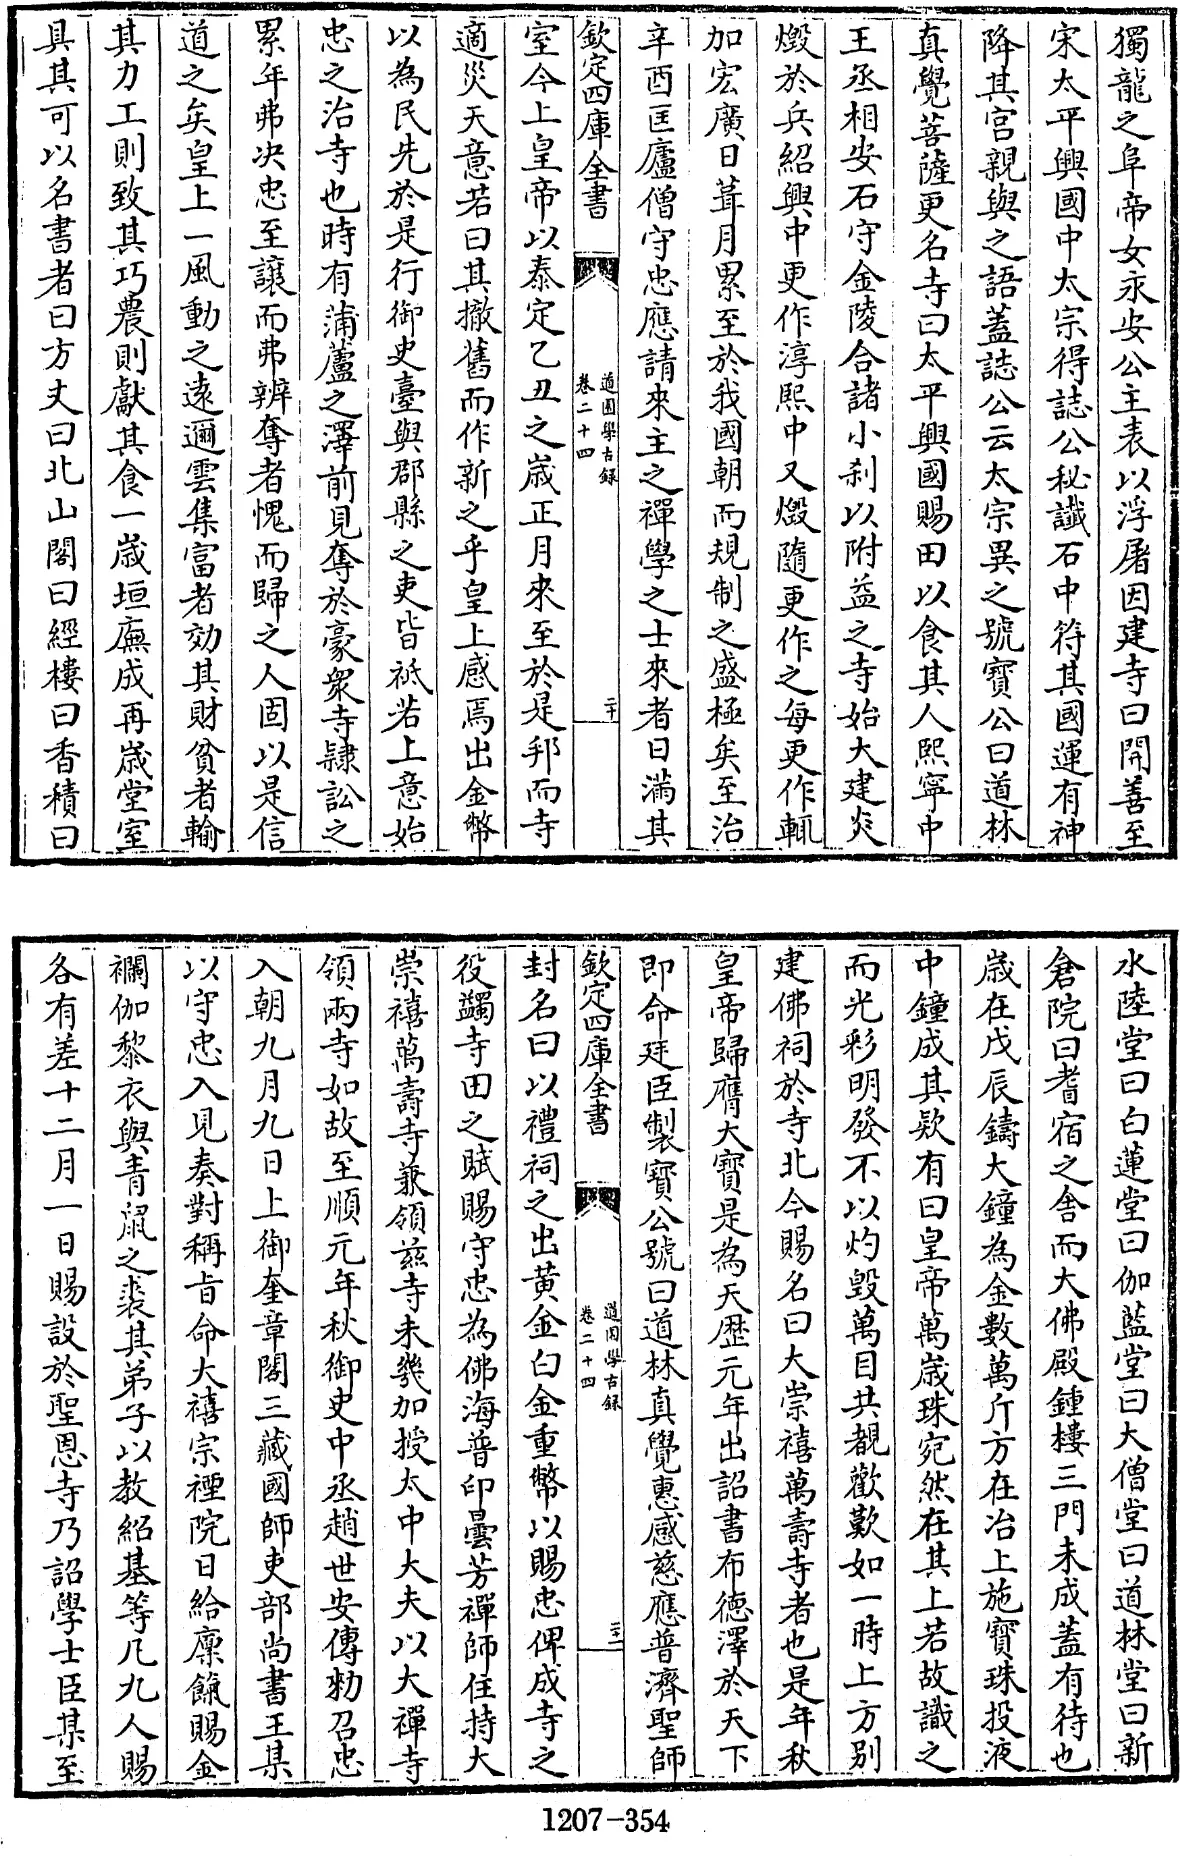 獨龍之阜帝女永安公主表以浮屠因建寺曰開善至
宋太平興國中太宗得誌公秘讖石中符其國運有神
降其宫親與之語蓋誌公云太宗異之號寳公曰道林
真覺菩薩更名寺曰太平興國賜田以食其人熙寧中
王丞相安石守金陵合諸小刹以附益之寺始大建炎
燬於兵紹興中更作淳熙中又燬隨更作之每更作輒
加宏廣日葺月累至於我國朝而規制之盛極矣至治
辛酉匡廬僧守忠應請來主之禪學之士來者日滿其
欽定四庫全書
道園學古録
卷二十四
二十
室今上皇帝以泰定乙丑之歳正月來至於是邦而寺
適災天意若曰其撤舊而作新之乎皇上感焉出金幣
以為民先於是行御史臺與郡縣之吏皆祗若上意始
忠之治寺也時有蒲蘆之澤前見奪於豪衆寺隸訟之
累年弗决忠至讓而弗辨奪者愧而歸之人固以是信
道之矣皇上一風動之逺邇雲集富者効其財貧者輸
其力工則致其巧農則獻其食一歳垣廡成再歳堂室
具其可以名書者曰方丈曰北山閣曰經樓曰香積曰
水陸堂曰白蓮堂曰伽藍堂曰大僧堂曰道林堂曰新
倉院曰耆宿之舎而大佛殿鍾樓三門未成蓋有待也
歳在戊辰鑄大鐘為金數萬斤方在冶上施寳珠投液
中鐘成其欵有曰皇帝萬歳珠宛然在其上若故識之
而光彩明發不以灼毁萬目共覩歡歎如一時上方别
建佛祠於寺北今賜名曰大崇禧萬壽寺者也是年秋
皇帝歸膺大寳是為天歴元年出詔書布徳澤於天下
即命廷臣製寳公號曰道林真覺惠感慈應普濟聖師
欽定四庫全書
道園學古録
卷二十四
二十一
封名曰以禮祠之出黄金白金重幣以賜忠俾成寺之
役蠲寺田之賦賜守忠為佛海普印曇芳禪師住持大
崇禧萬壽寺兼領兹寺未幾加授太中大夫以大禪寺
領兩寺如故至順元年秋御史中丞趙世安傳勅召忠
入朝九月九日上御奎章閣三藏國師吏部尚書王某
以守忠入見奏對稱旨命大禧宗禋院日給廩餼賜金
襴伽黎衣與青鼠之裘其弟子以教紹基等凡九人賜
各有差十二月一日賜設於聖恩寺乃詔學士臣某至
1207-354